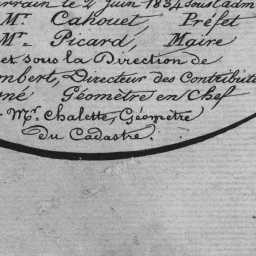 rrain le 2 Juin 1834 sous l'adm
Mr. Cahouet, Préfet
Mr. Picard, Maire
et sous la Direction de
mbert, Directeur des Contributi
né Géomètre en Chef
Mr. Chalette, Géomètre
du Cadastre.